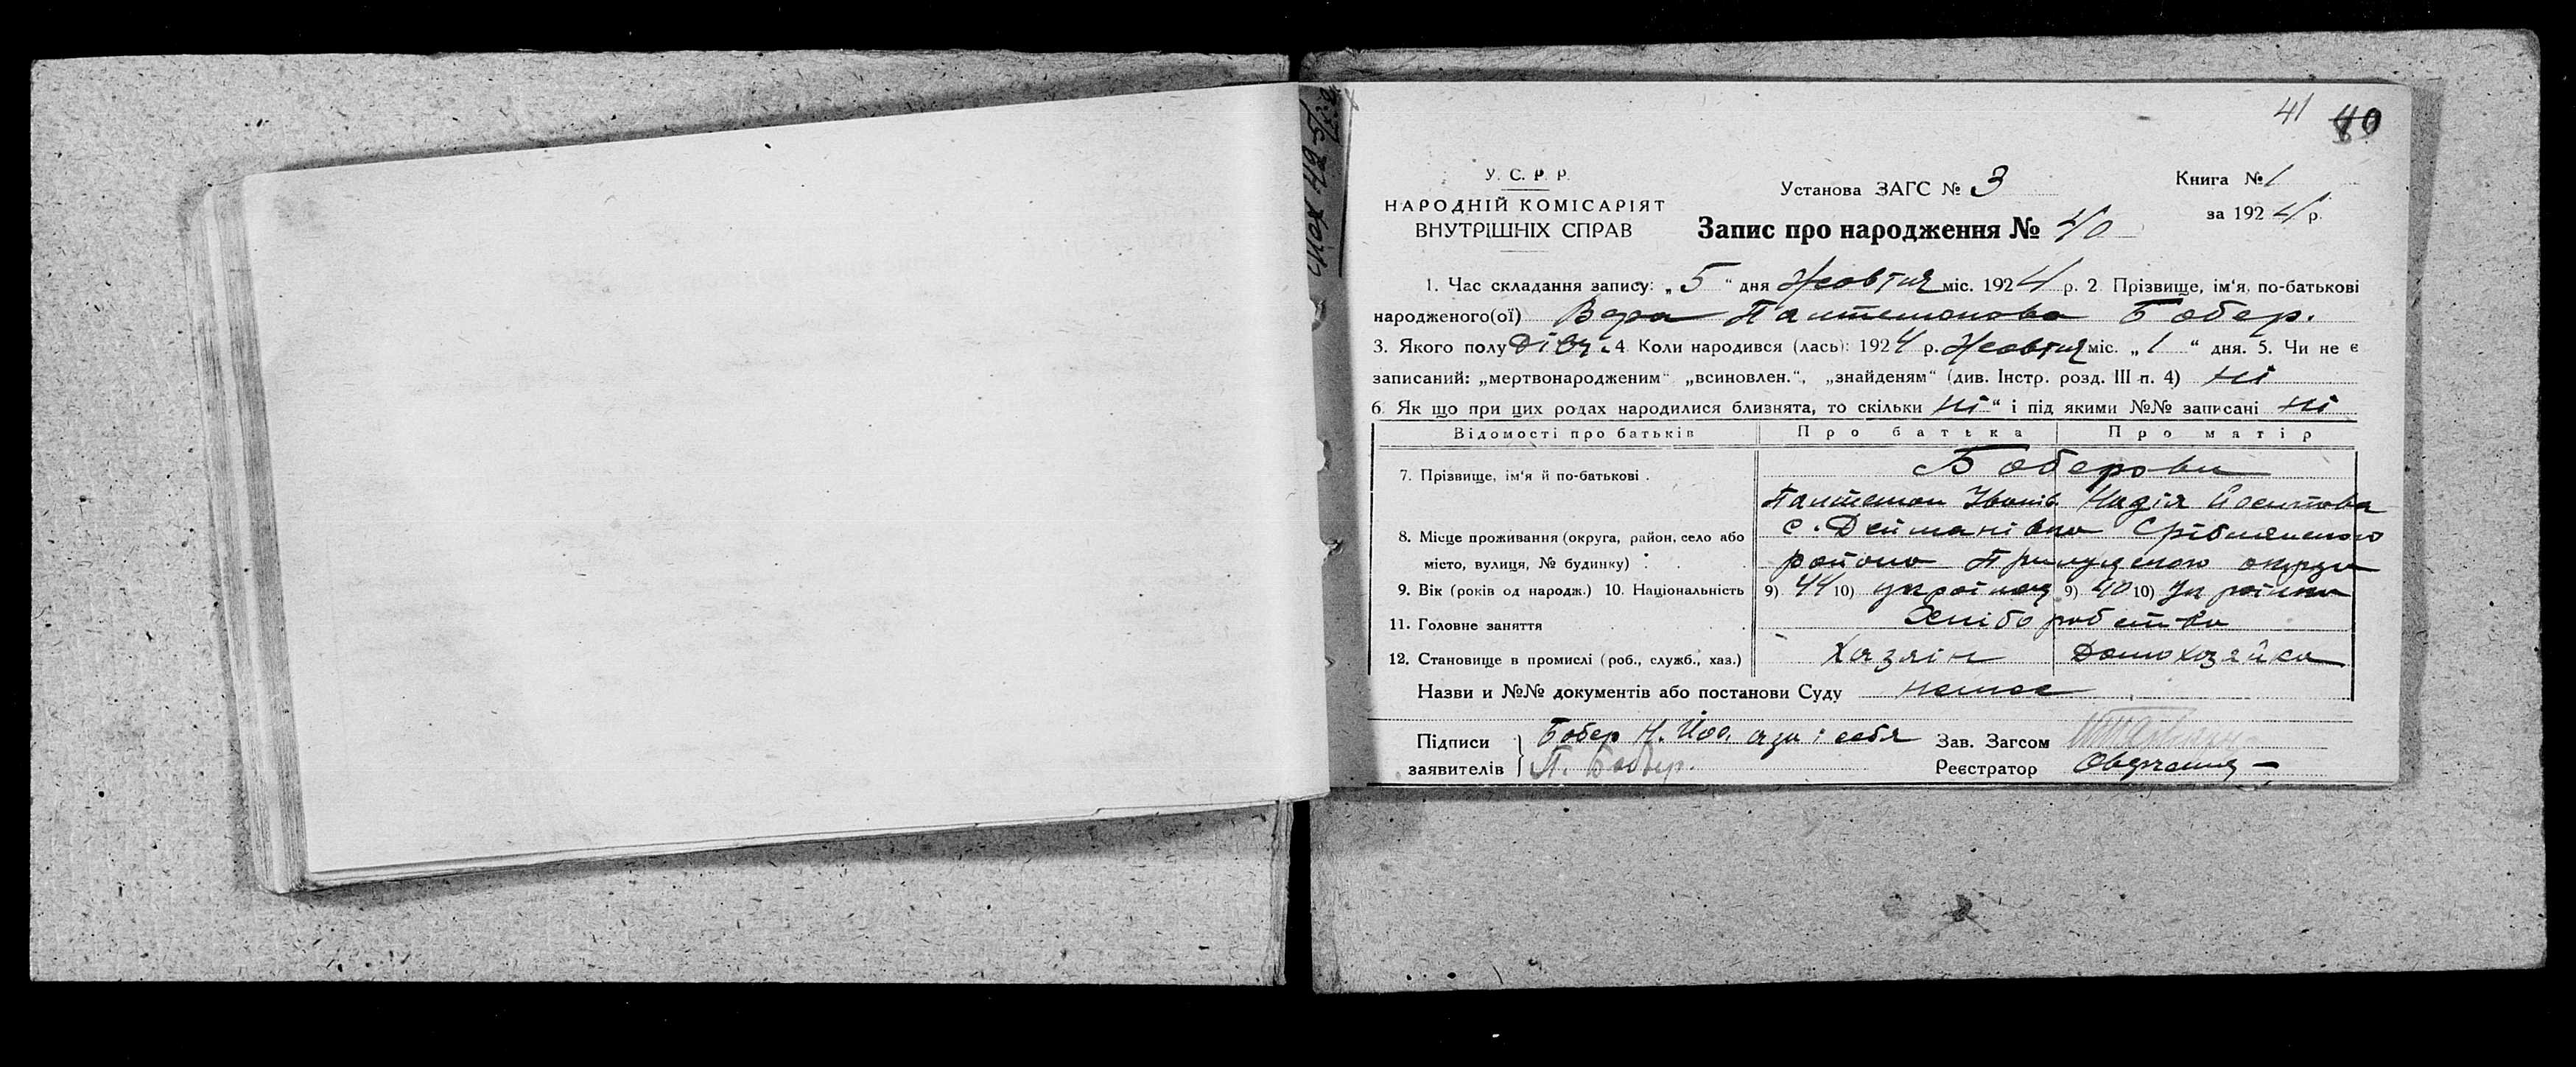 41 40
У. С. Р. Р.
НАРОДНІЙ КОМІСАРІЯТ
ВНУТРІШНІХ СПРАВ
Установа ЗАГС № 3
Книга № 1
за 1924 р.
Запис про народження № 40
1. Час складання запису: „5“ дня Жовтня міс. 1924 р. 2. Прізвище, ім‘я, по-батькові
народженого(ої) Вера Пантемонова Бобер.
3. Якого полу Дівч. 4. Коли народився (лась): 1924 р. Жовтня міс. „1“ дня. 5. Чи не є
записаний: „мертвонародженим“ „всиновлен.“, „знайденям“ (див. Інстр. розд. III п. 4) ні
6. Як що при цих родах народилися близнята, то скільки ні“ і під якими №№ записані ні
Відомості про батьків Про батька Про матір
7. Прізвище, ім‘я й по-батькові . Боберови
Пантемон Іванів Надія Йосипова
8. Місце проживання (округа, район, село або місто, вулиця, № будинку) : с. Дейманівка Срібнянського
района Прилуцького округи
9. Вік (років од народж.) 10. Національність 9) 44 10) україней 9) 40 10) україна
11. Головне заняття Хліборобство
12. Становище в промислі (роб., служб., хаз.) Хазяін Домохозяйка
Назви и №№ документів або постанови Суду немає
Підписи заявителів Бобер Н. Йос. а за і себя
П. Бобер.
Зав. Загсом
Реєстратор